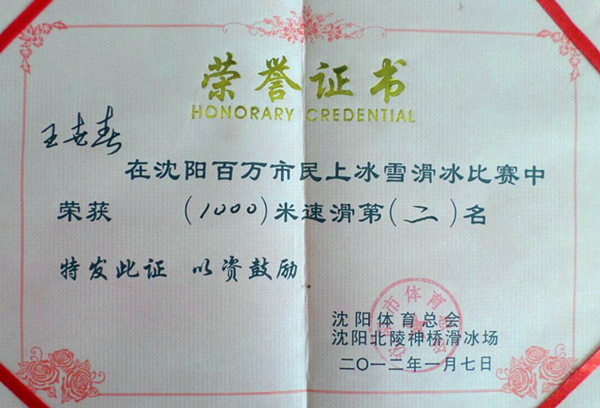 荣誉证书
HONORARY CREDENTIAL
王世春
在沈阳百万市民上冰雪滑冰比赛中
荣获 (1000)米速滑第(二)名
特发此证 以资鼓励
沈阳体育总会
沈阳北陵神桥滑冰场
二〇一二年一月七日